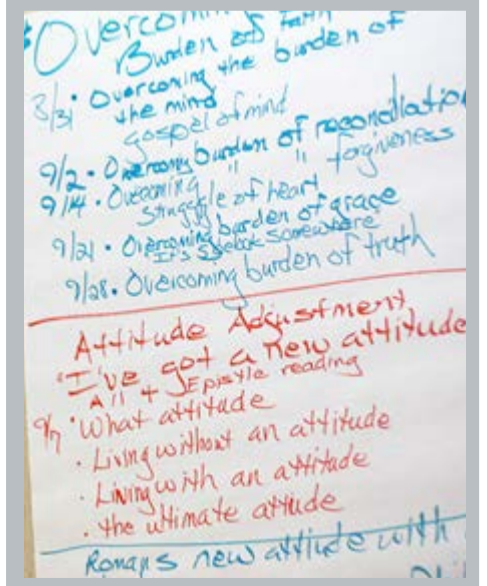 Overcoming
Burden of faith
8/31 • Overcoming the burden of
the mind
gospel of mind
9/2 • Overcoming burden of reconciliation
9/14 • Overcoming " " forgiveness
struggle of heart
9/21 • Overcoming burden of grace
It's sidebok somewhere
9/28 • Overcoming burden of truth
Attitude Adjustment
"I've got a new attitude
All + Epistle reading
9/7 • What attitude
• Living without an attitude
• Living with an attitude
• the ultimate attude
Romans new attitude with